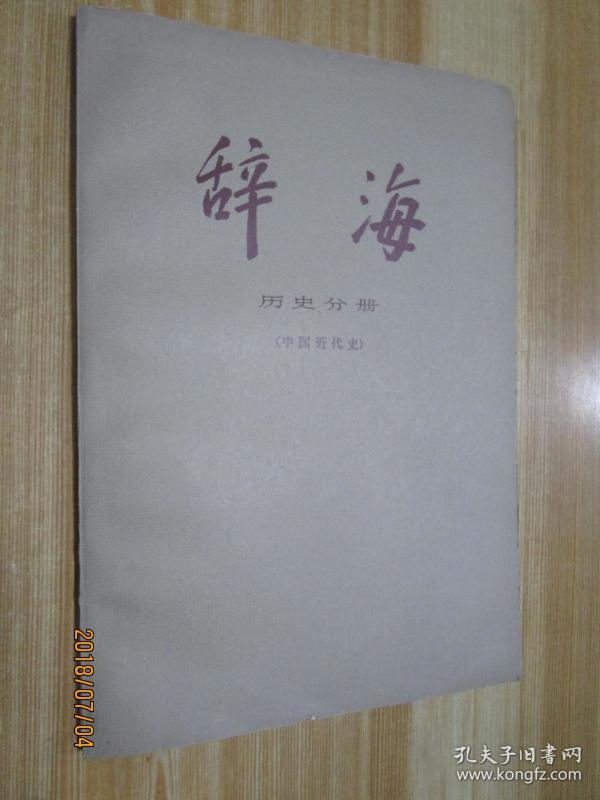 辞海
历史分册
(中国近代史)
2018/07/04
孔夫子旧书网
www.kongfz.com